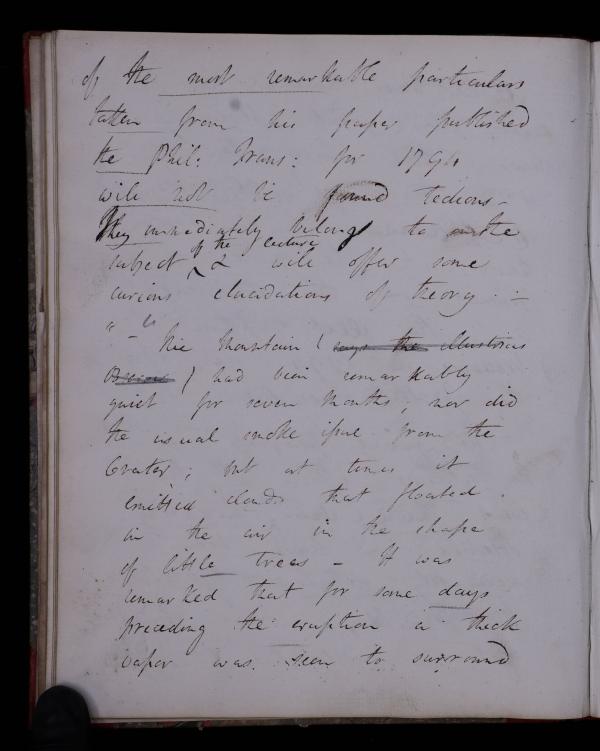 of the most remarkable particulars
taken from his paper published
the Phil: Trans: for 1794
will not be found tedious -
They immediately belong to the
of the lecture
subject & will offer some
curious elucidations of theory. -
" - The Mountain ( says the illustrious
) had been remarkably
quiet for seven Months, nor did
the usual smoke issue from the
Crater; but at times it
emitted clouds that floated
in the air in the shape
of little trees - It was
remarked that for some days
preceding the eruption a thick
vapor was seen to surround